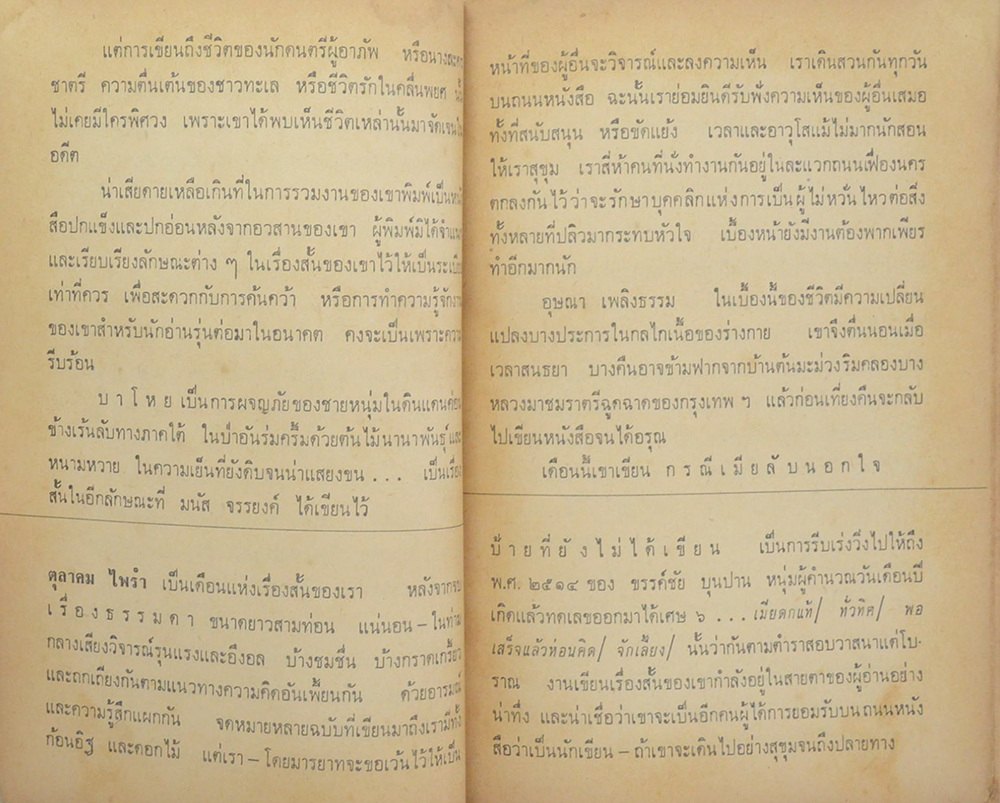 แต่การเขียนถึงชีวิตของนักดนตรีผู้อาภัพ หรือนางละคร
ชาตรี ความตื่นเต้นของชาวทะเล หรือชีวิตรักในคลื่นพยศ นั้น
ไม่เคยมีใครพิศวง เพราะเขาได้พบเห็นชีวิตเหล่านั้นมาจัดเจนใน
อดีต
น่าเสียดายเหลือเกินที่ในการรวมงานของเขาพิมพ์เป็นหนัง
สือปกแข็งและปกอ่อนหลังจากอวสานของเขา ผู้พิมพ์มิได้จำแนก
และเรียบเรียงลักษณะต่าง ๆ ในเรื่องสั้นของเขาไว้ให้เป็นระเบียบ
เท่าที่ควร เพื่อสะดวกกับการค้นคว้า หรือการทำความรู้จักงาน
ของเขาสำหรับนักอ่านรุ่นต่อมาในอนาคต คงจะเป็นเพราะความ
รีบร้อน
บ า โ ห ย เป็นการผจญภัยของชายหนุ่มในดินแดน
ข้างเร้นลับทางภาคใต้ ในป่าอันร่มครึ้มด้วยต้นไม้นานาพันธุ์และ
หนามหวาย ในความเย็นที่ยังดิบจนน่าแสยงขน . . . เป็นเรื่อง
สั้นในอีกลักษณะที่ มนัส จรรยงค์ ได้เขียนไว้
ตุลาคม ไพรำ เป็นเดือนแห่งเรื่องสั้นของเรา หลังจากจบ
เ รื่ อ ง ธ ร ร ม ด า ขนาดยาวสามท่อน แน่นอน – ในท่าม
กลางเสียงวิจารณ์รุนแรงและอึงอล บ้างชมชื่น บ้างกราดเกรี้ยว
และถกเถียงกันตามแนวทางความคิดอันเพี้ยนกัน ด้วยอารมณ์
และความรู้สึกแผกกัน จดหมายหลายฉบับที่เขียนมาถึงเรามีทั้ง
ก้อนอิฐ และดอกไม้ แต่เรา – โดยมารยาทจะขอเว้นไว้ให้เป็น
หน้าที่ของผู้อื่นจะวิจารณ์และลงความเห็น เราเดินสวนกันทุกวัน
บนถนนหนังสือ ฉะนั้นเราย่อมยินดีรับฟังความเห็นของผู้อื่นเสมอ
ทั้งที่สนับสนุน หรือขัดแย้ง เวลาและอาวุโสแม้ไม่มากนักสอน
ให้เราสุขุม เราสี่ห้าคนที่นั่งทำงานกันอยู่ในละแวกถนนเฟื่องนคร
ตกลงกันไว้ว่าจะรักษาบุคคลิกแห่งการเป็นผู้ไม่หวั่นไหวต่อสิ่ง
ทั้งหลายที่ปลิวมากระทบหัวใจ เบื้องหน้ายังมีงานต้องพากเพียร
ทำอีกมากนัก
อุษณา เพลิงธรรม ในเบื้องนี้ของชีวิตมีความเปลี่ยน
แปลงบางประการในกลไกเนื้อของร่างกาย เขาจึงตื่นนอนเมื่อ
เวลาสนธยา บางคืนอาจข้ามฟากจากบ้านต้นมะม่วงริมคลองบาง
หลวงมาชมราตรีฉูดฉาดของกรุงเทพ ฯ แล้วก่อนเที่ยงคืนจะกลับ
ไปเขียนหนังสือจนได้อรุณ
เดือนนี้เขาเขียน ก ร ณี เ มี ย ลั บ น อ ก ใ จ
บ่ า ย ที่ ยั ง ไ ม่ ไ ด้ เ ขี ย น เป็นการรีบเร่งวิ่งไปให้ถึง
พ.ศ. ๒๕๑๔ ของ ขรรค์ชัย บุนปาน หนุ่มผู้คำนวณวันเดือนปี
เกิดแล้วทดเลขออกมาได้เศษ ๖ . . . เมียดกแท้/ ทั่วทิศ/ พอ
เสร็จแล้วท่อนคิด/ จักเลี้ยง/ นั้นว่ากันตามตำราสอบวาสนาแต่โบ-
ราณ งานเขียนเรื่องสั้นของเขากำลังอยู่ในสายตาของผู้อ่านอย่าง
น่าทึ่ง และน่าเชื่อว่าเขาจะเป็นอีกคนผู้ได้การยอมรับบนถนนหนัง
สือว่าเป็นนักเขียน – ถ้าเขาจะเดินไปอย่างสุขุมจนถึงปลายทาง